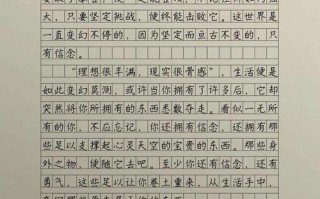 大，只要坚定挑战，便终能击败它。这世界是
一直变幻不停的，因为坚定而亘古不变的，只
有信念。
“理想很丰满，现实很骨感”，生活便是
如此变幻莫测，或许当你拥有了许多后，它却
突然将你所拥有的东西悉数夺走。看似一无所
有的你，不应忘记，你还拥有信念，还拥有那
些足以支撑起心灵天空的宝贵的东西。那些身
外之物，便随它去吧，至少你还有信念，还有
勇气，这些足以让你卷土重来，从生活手中，